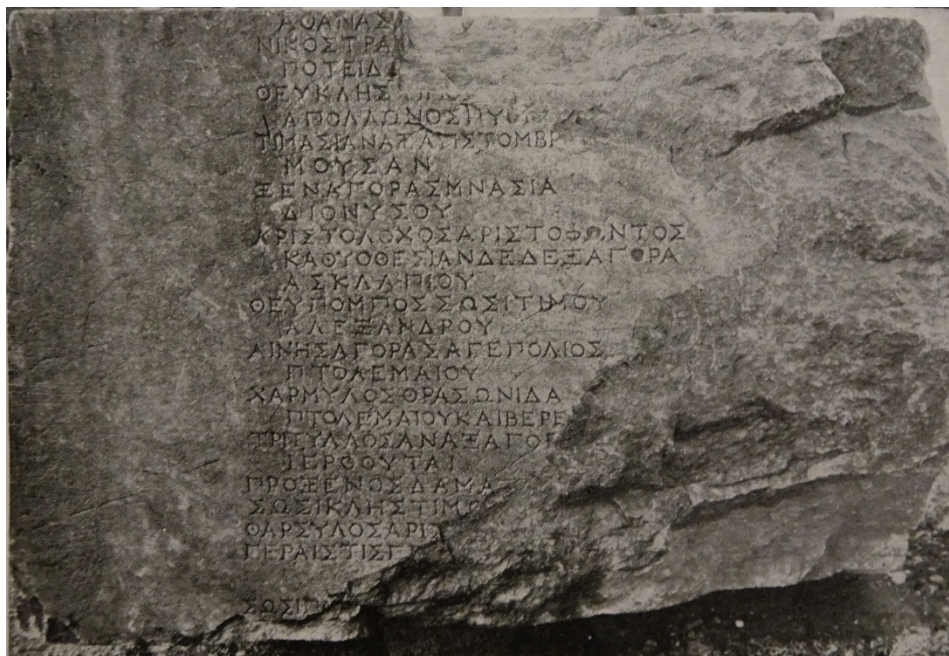 ΑΘΑΝΑΣ
ΝΙΚΟΣΤΡΑ
ΠΟΤΕΙΔ
ΘΕΥΚΛΗΣ
ΑΠΟΛΛΩΝΟΣΠΥ
ΤΙΜΑΣΙΑΝΑΞ
ΜΟΥΣΑΝ
ΞΕΝΑΓΟΡΑΣΜΝΑΣΙΑ
ΔΙΟΝΥΣΟΥ
ΑΡΙΣΤΟΛΟΧΟΣΑΡΙΣΤΟΦΩΝΤΟΣ
ΚΑΘΥΟΘΕΣΙΑΝΔΕΔΕΞΑΓΟΡΑ
ΑΣΚΛΑΠΙΟΥ
ΘΕΥΠΟΜΠΟΣΣΩΣΙΤΙΜΟΥ
ΑΛΕΞΑΝΔΡΟΥ
ΑΙΝΗΣΑΓΟΡΑΣΑΓΕΠΟΛΙΟΣ
ΠΤΟΛΕΜΑΙΟΥ
ΧΑΡΜΥΛΟΣΘΡΑΣΩΝΙΔΑ
ΠΤΟΛΕΜΑΙΟΥΚΑΙΒΕΡΕ
ΤΡΙΤΥΛΛΟΣΑΝΑΞΑΓΟΡ
ΙΕΡΟΘΥΤΑΙ
ΠΡΟΞΕΝΟΣΔΑΜΑ
ΣΩΣΙΚΛΗΣΤΙΜΟ
ΘΑΡΣΥΛΟΣΑΡΙΣ
ΠΕΡΑΙΣΤΙΣΠ
ΣΩΣΙΠ